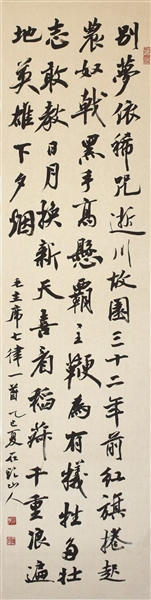 別夢依稀咒逝川故園三十二年前紅旗捲起
農奴戟黑手高懸霸主鞭為有犧牲多壯
志敢教日月換新天喜看稻菽千重浪遍
地英雄下夕烟
毛主席七律一首 乙巳夏石山人